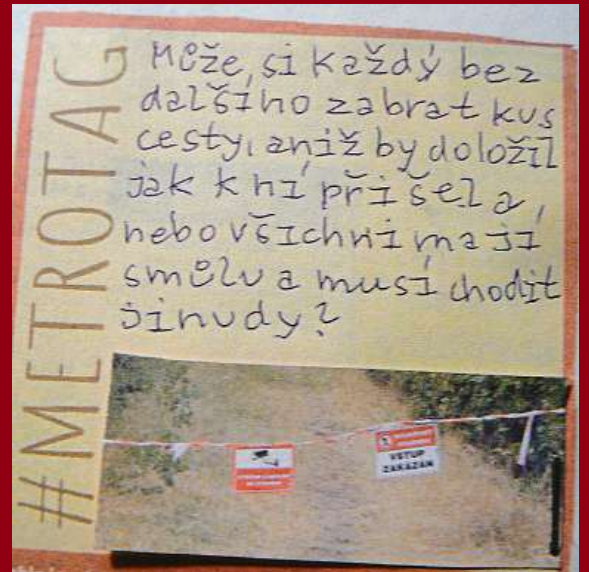 #METROTAG
Může si každý bez
dalšího zabrat kus
cesty, aniž by doložil
jak k ní přišel a,
nebo všichni mají
smůlu a musí chodit
jinudy?
VSTUP
ZAKÁZÁN